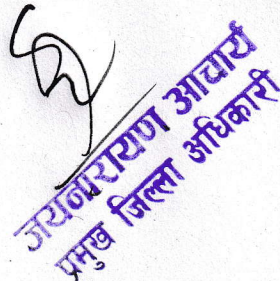 जयनारायण आचार्य
प्रमुख जिल्ला अधिकारी